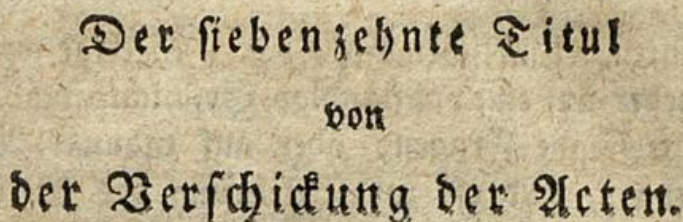 Der siebenzehnte Titul
von
der Verschickung der Acten.